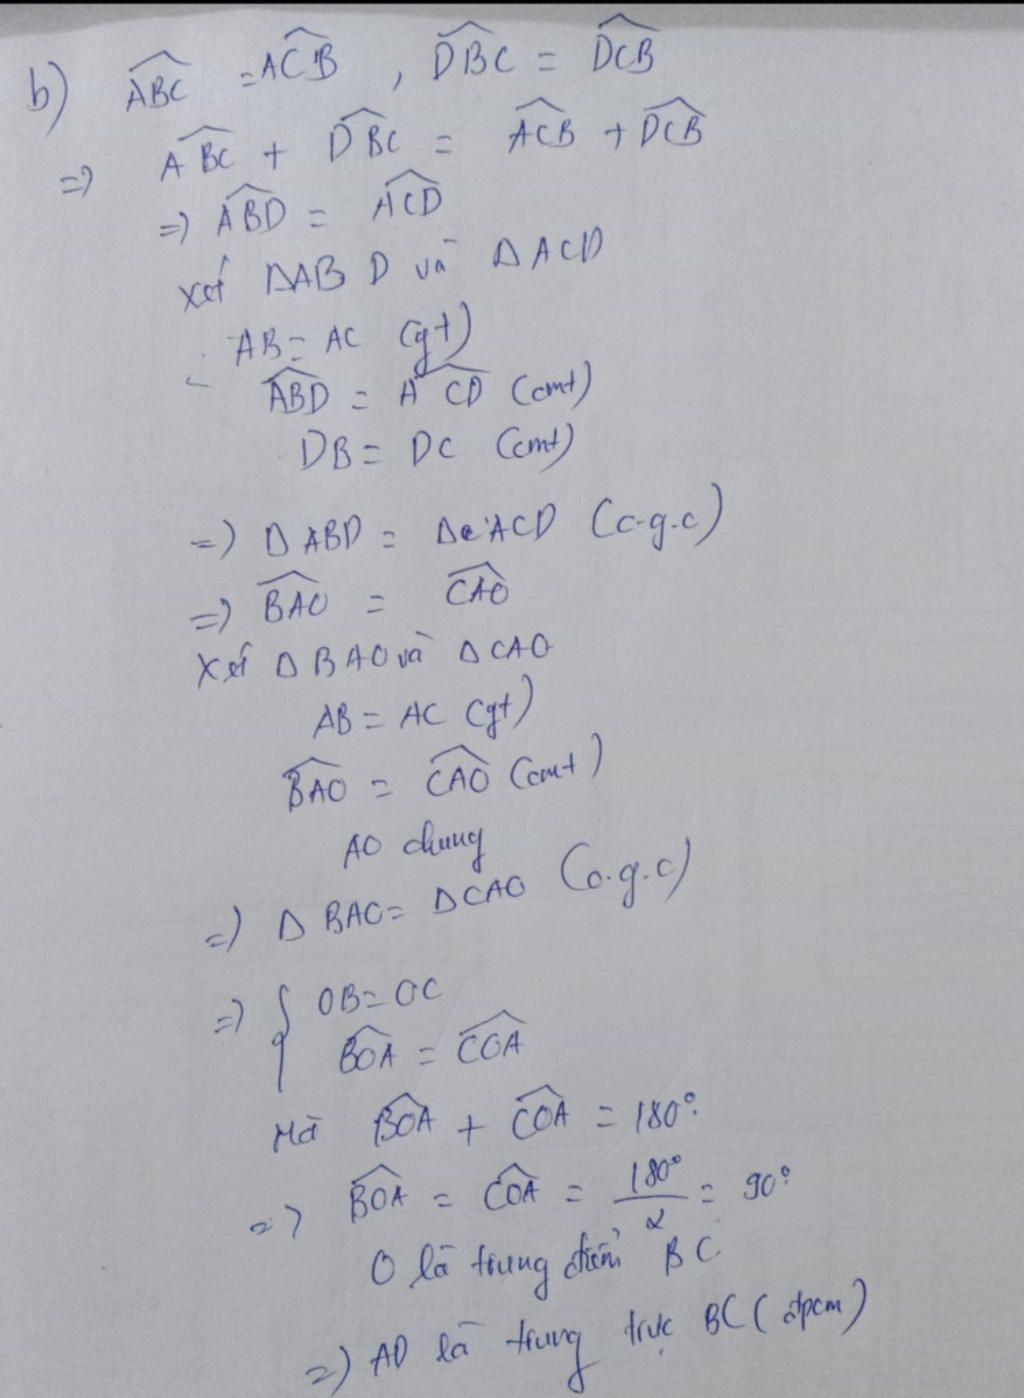 b) ABC = ACB , DBC = DCB
=> ABC + DBC = ACB + DCB
=> ABD = ACD
Xét ΔABD và ΔACD
AB = AC (gt)
ABD = ACD (cmt)
DB = DC (cmt)
=> ΔABD = ΔACD (c.g.c)
=> BAO = CAO
Xét ΔBAO và ΔCAO
AB = AC (gt)
BAO = CAO (cmt)
AO chung
=> ΔBAO = ΔCAO (c.g.c)
=> { OB = OC
BOA = COA
Mà BOA + COA = 180°
=> BOA = COA = 180°/2 = 90°
O là trung điểm BC
=> AD là trung trực BC (đpcm)